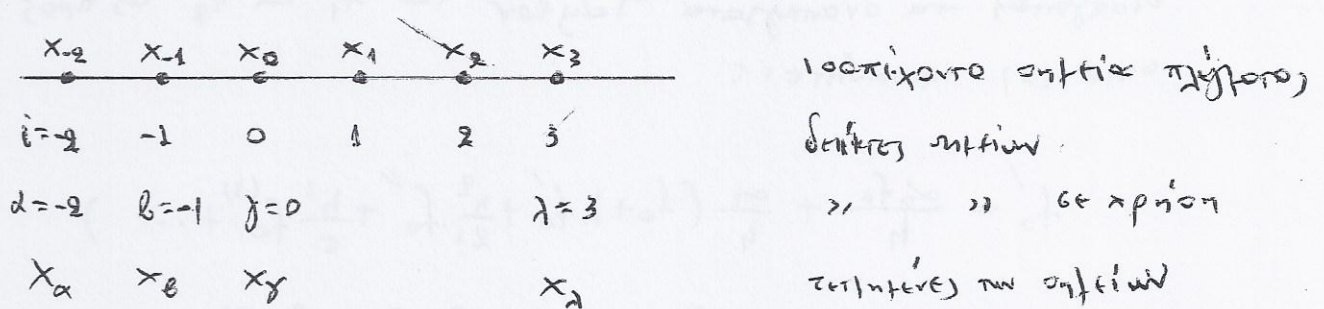 x₋₂ x₋₁ x₀ x₁ x₂ x₃ ισαπέχοντα σημεία πλέγματος
i=-2 -1 0 1 2 3 δείκτες σημείων
α=-2 β=-1 γ=0 λ=3 » » σε χρήση
xα xβ xγ xλ τετμημένες των σημείων